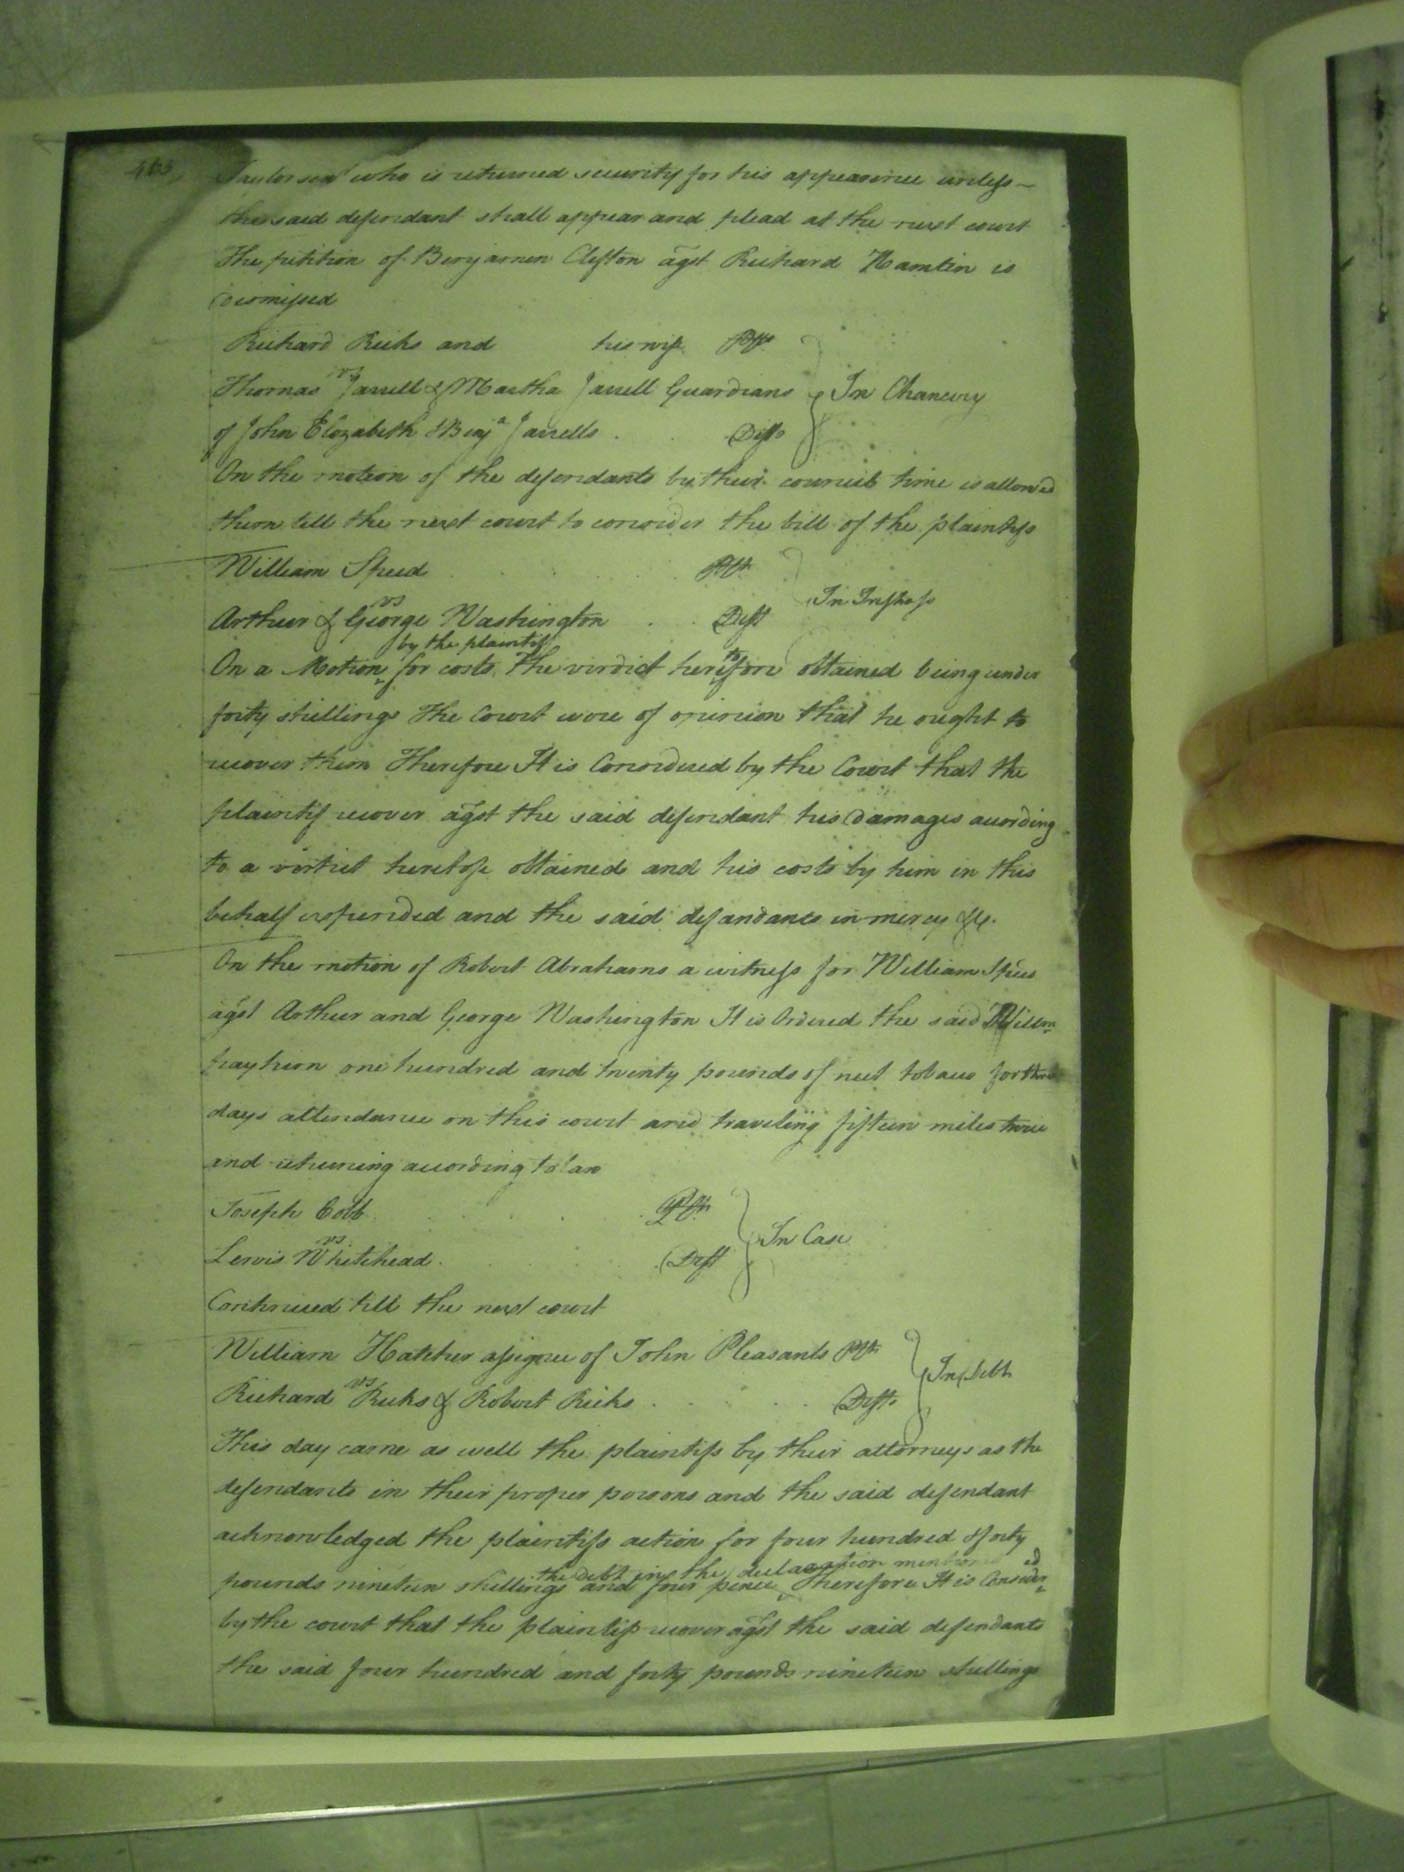 Taylor sen.r who is returned security for his appearance unless
the said defendant shall appear and plead at the next court
The petition of Benjamen Clifton agst Richard Hamlin is
dismissed
Richard Ricks and his wife Pltfs
vs
Thomas Jarrell & Martha Jarrell Guardians
In Chancery
of John Elizabeth & Benj.a Jarrells Defts
On the motion of the defendants by their councils time is allowed
them till the next court to consider the bill of the plaintifs
William Speed Pltf
vs
Arthur & George Washington Deft
In Trespass
by the plaintif
On a Motion for costs The virdict heretofore obtained being under
forty shillings the Court were of opinion that he ought to
recover them Therefore It is Considered by the Court that the
plaintif recover agst the said defendant his damages according
to a virdict heretofe obtained and his costs by him in this
behalf expended and the said defandants in mercy &c.
On the motion of Robert Abrahams a witness for William Speed
agst Arthur and George Washington It is Ordered the said Willm
pay him one hundred and twenty pounds of neet tobaco for three
days attendance on this court and traveling fifteen miles twice
and returning according to law
Joseph Cobb Pltf
vs
In Case
Lewis Whitehead Deft
Continued till the next court
William Hatcher assignee of John Pleasants Pltf
vs
In Debt
Richard Ricks & Robert Ricks Deft.
This day came as well the plaintifs by their attorneys as the
defendants in their proper persons and the said defendant
acknowledged the plaintifs action for four hundred & forty
the debt in the declaration mentioned
pounds nineteen shillings and four pence Therefore It is Considered
by the court that the plaintifs recover agst the said defendants
the said four hundred and forty pounds nineteen shillings